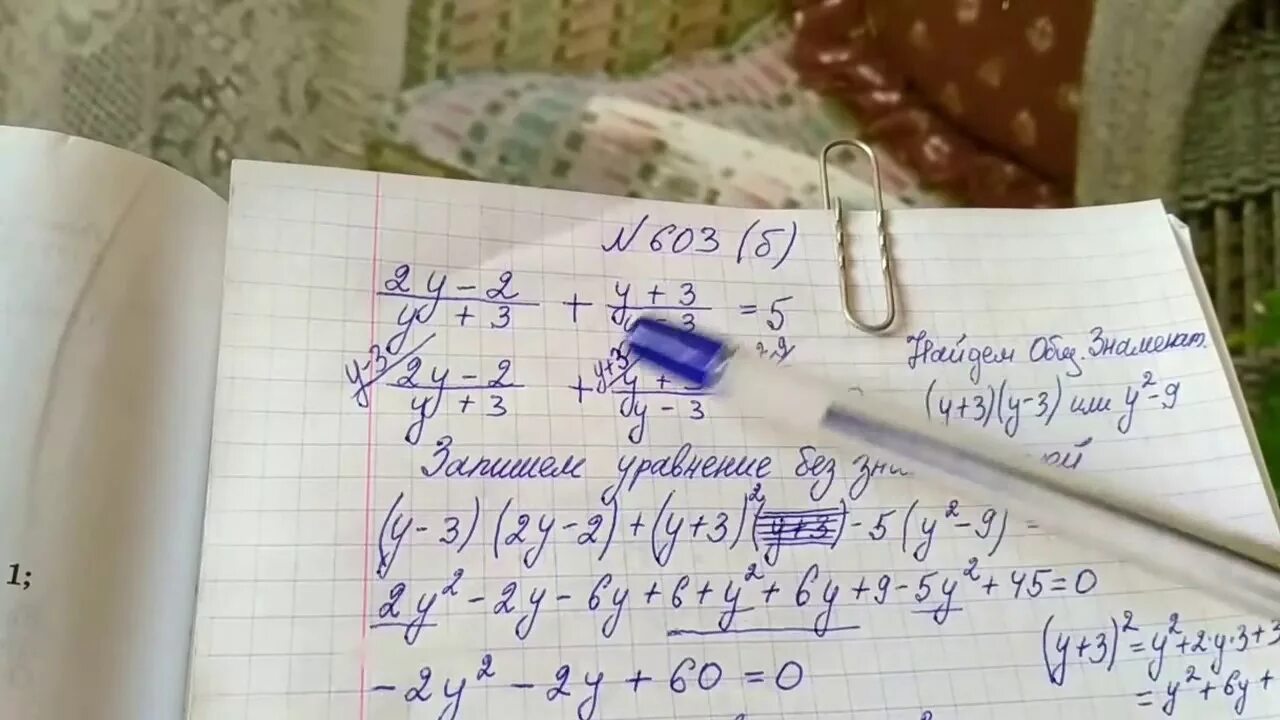 N 603 (б)
(2y - 2)/(y + 3) + (y + 3)/(y - 3) = 5
y-3/ (2y - 2)/(y + 3) + y+3/ (y + 3)/(y - 3)
Найдем Общ. Знаменат.
(y+3)(y-3) или y²-9
Запишем уравнение без
(y-3)(2y-2)+(y+3)² -5(y²-9) =
1;
2y²-2y-6y+6+y²+6y+9-5y²+45=0
(y+3)²=y²+2·y·3+3
= y²+6y+
-2y²-2y+60=0